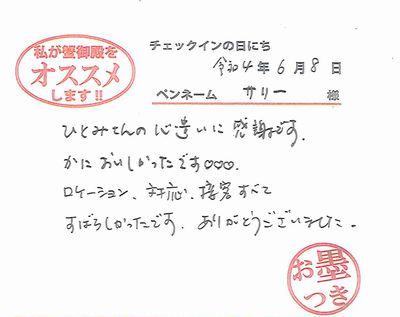 私が蟹御殿を
オススメ
します!!
チェックインの日にち
令和4年6月8日
ペンネーム サリー 様
ひとみさんの心遣いに感謝です。
かにおいしかったです♡♡♡.
ロケーション、対応、接客すべて
すばらしかったです。ありがとうございました。
お墨
つき